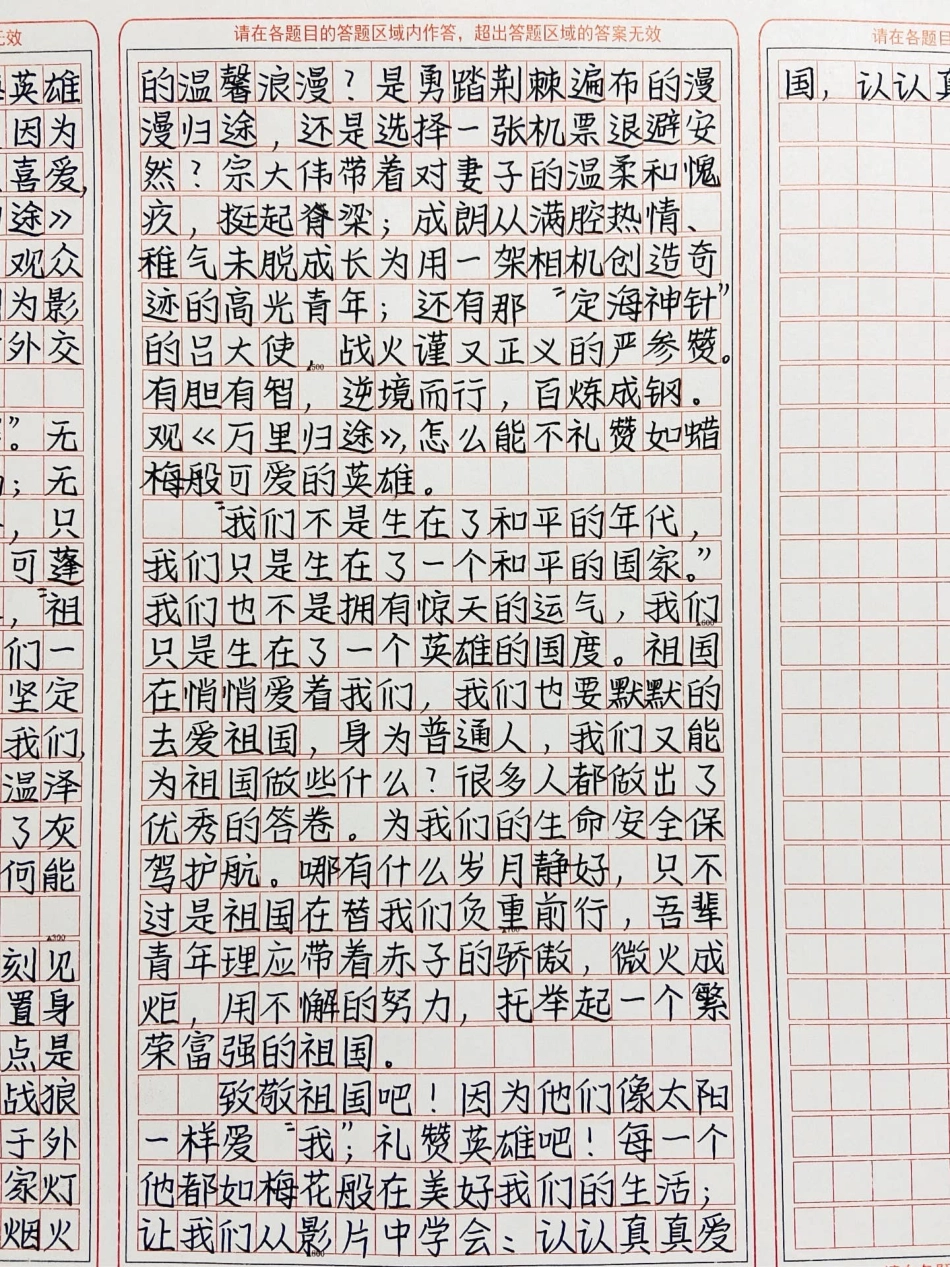 无效
英雄
因为
喜爱,
途》
观众
为影
外交
”。无
;无
,只
可蓬
,“祖
们一
坚定
我们,
温泽
了灰
何能
▲300
刻见
置身
点是
战狼
于外
家灯
烟火
请在各题目的答题区域内作答，超出答题区域的答案无效
的温馨浪漫？是勇踏荆棘遍布的漫
漫归途，还是选择一张机票退避安
然？宗大伟带着对妻子的温柔和愧
疚，挺起脊梁；成朗从满腔热情、
稚气未脱成长为用一架相机创造奇
迹的高光青年；还有那“定海神针”
的吕大使，战火谨又正义的严参赞。
▲500
有胆有智，逆境而行，百炼成钢。
观《万里归途》，怎么能不礼赞如蜡
梅般可爱的英雄。
“我们不是生在了和平的年代，
我们只是生在了一个和平的国家。”
我们也不是拥有惊天的运气，我们
▲600
只是生在了一个英雄的国度。祖国
在悄悄爱着我们，我们也要默默的
去爱祖国，身为普通人，我们又能
为祖国做些什么？很多人都做出了
优秀的答卷。为我们的生命安全保
驾护航。哪有什么岁月静好，只不
过是祖国在替我们负重前行，吾辈
▲700
青年理应带着赤子的骄傲，微火成
炬，用不懈的努力，托举起一个繁
荣富强的祖国。
致敬祖国吧！因为他们像太阳
一样爱“我”；礼赞英雄吧！每一个
他都如梅花般在美好我们的生活；
让我们从影片中学会：认认真真爱
▲800
请在各题目
国，认认真